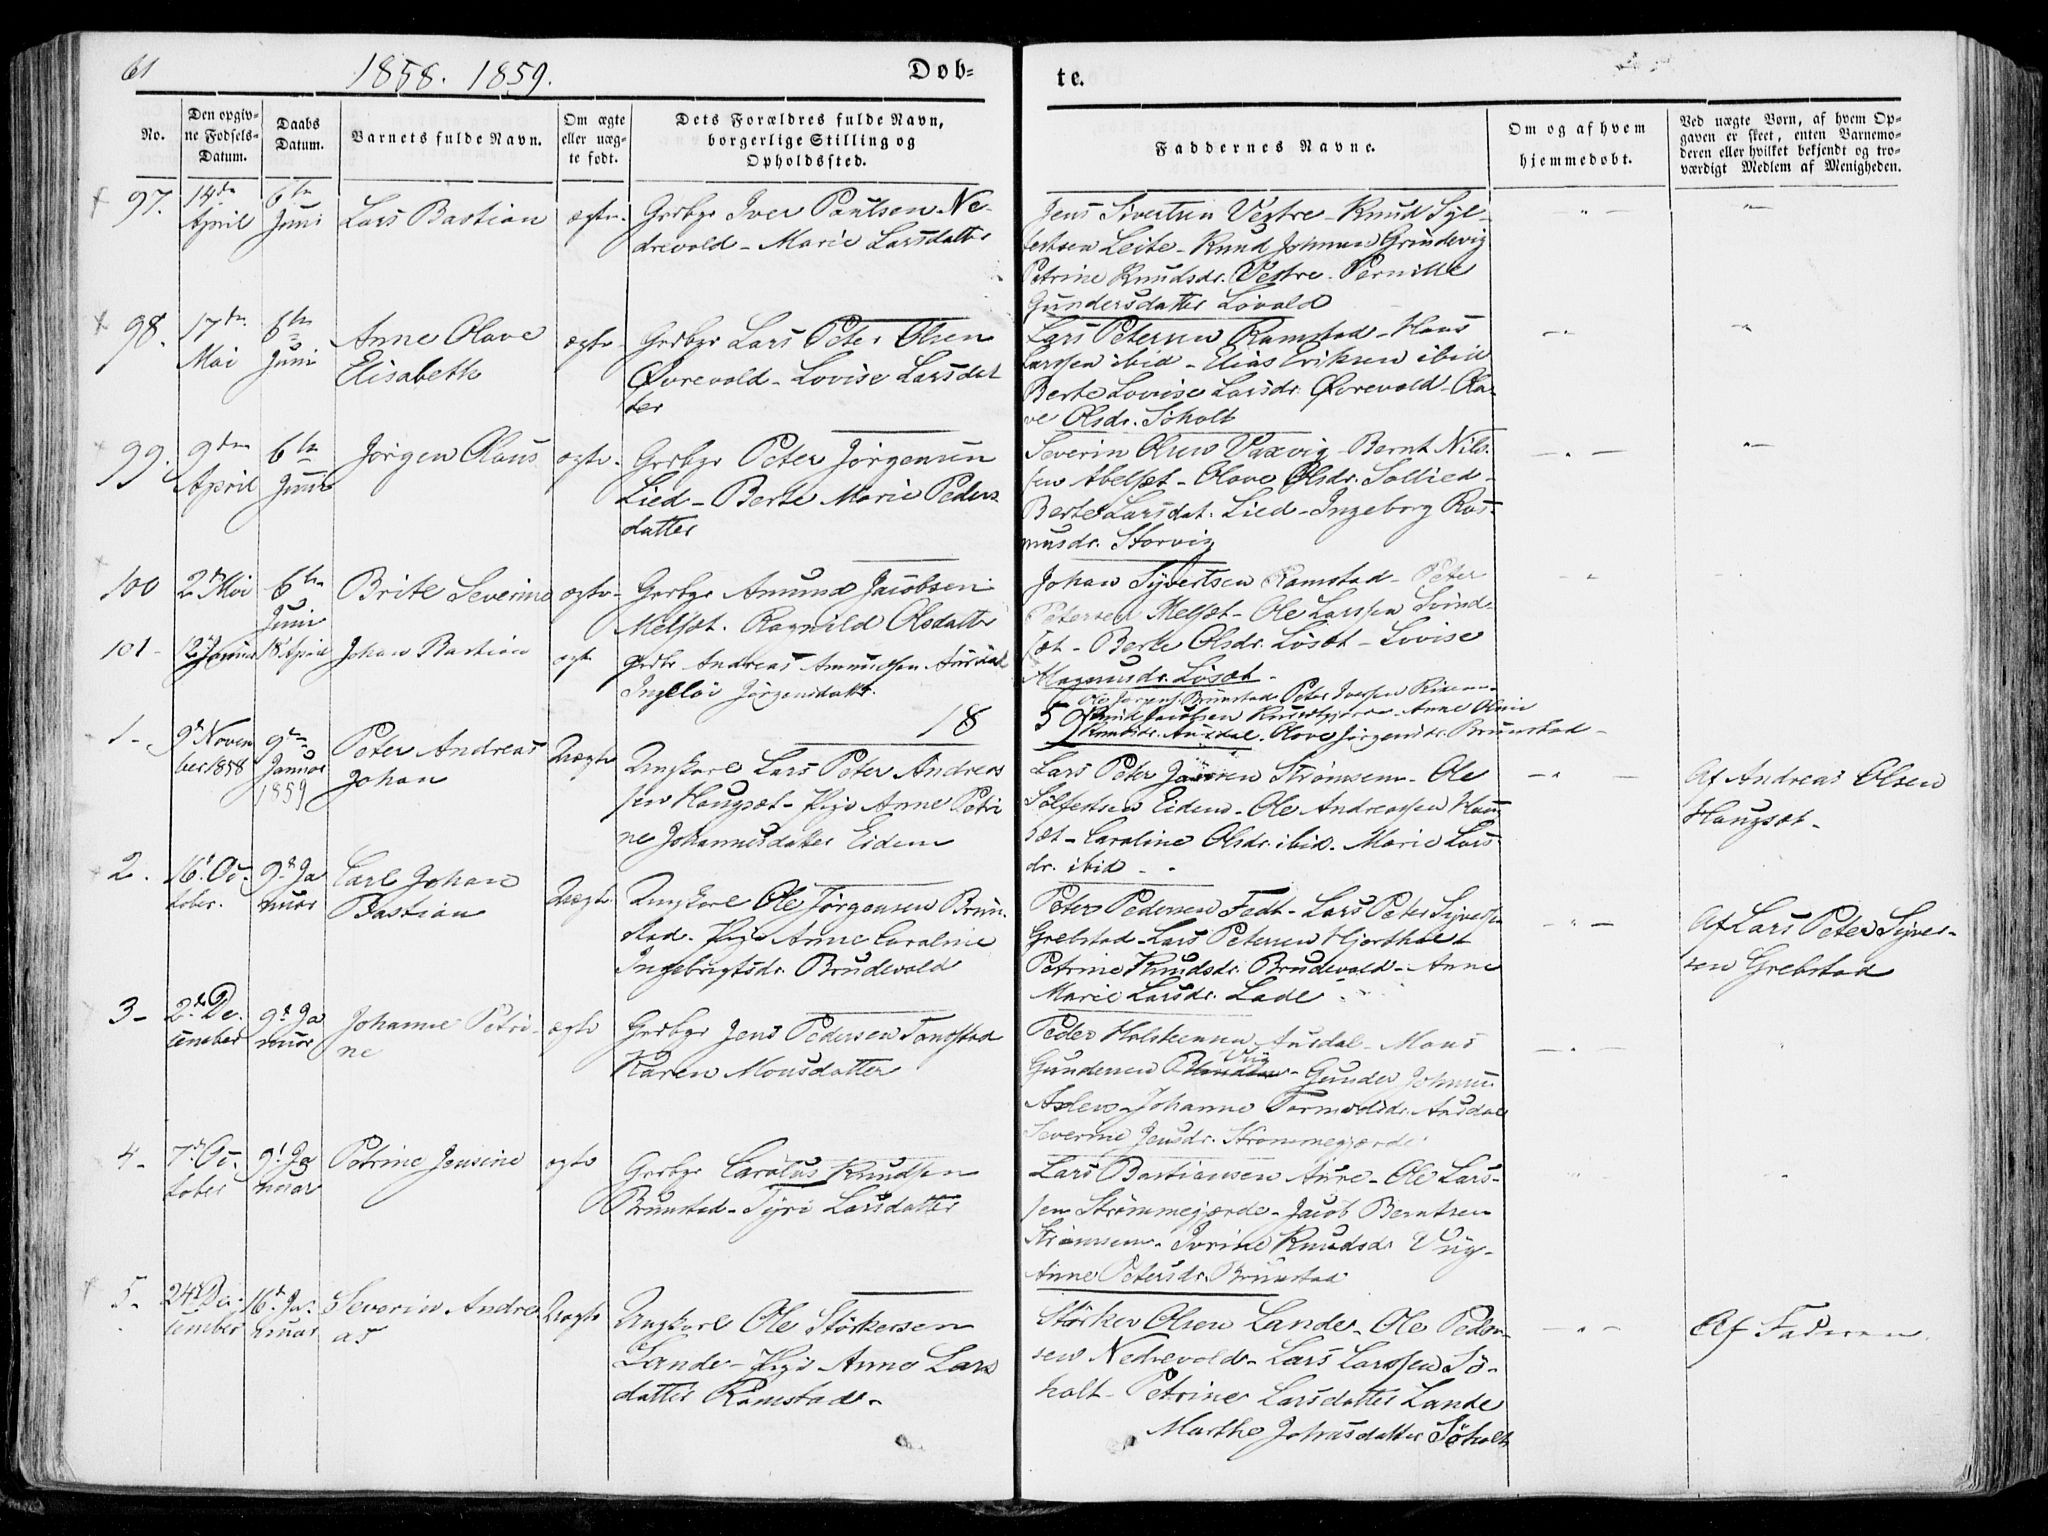 61
1858. 1859.
Døb-
te.
No.
Den opgiv-
ne Fødsels-
Datum.
Daabs
Datum.
Barnets fulde Navn.
Om ægte
eller uæg-
te født.
Dets Forældres fulde Navn,
borgerlige Stilling og
Opholdssted.
Faddernes Navne.
Om og af hvem
hjemmedøbt.
Ved uægte Børn, af hvem Op-
gaven er skeet, enten Barnemo-
deren eller hvilket bekjendt og tro-
værdigt Medlem af Menigheden.
97.
14de
April
6te
Juni
Lars Bastian
ægte
Grdbgr Iver Paulsen Ne-
drevold - Marie Larsdatter
Jens Sivertsen Vestre - Knud Syl-
festsen Leite - Knud Johnsen Grindevig
Petrine Knudsdr. Vestre - Pernille
Gundersdatter Løvold
98.
17de
Mai
6te
Juni
Anne Olave
Elisabeth
ægte
Grdbgr Lars Peter Olsen
Øvrevold - Lovise Larsdat
ter
Lars Petersen Ramstad - Hans
Larssen ibid - Elias Eriksen ibid
Berte Lovise Larsdr. Øvrevold - Ola-
ve Olsdr. Søholt
99.
9de
April
6te
Juni
Jørgen Olaus
ægte
Grdbgr Peter Jørgensen
Lied - Berte Marie Peders
datter
Severin Olsen Vaxvig - Bernt Nils-
sen Abelset - Olave Olsdr. Sollied -
Berte Larsdat. Lied - Ingeborg Ras-
musdr. Storvig
100
2d Mai
6te
Juni
Brite Severine
ægte
Grdbgr Amund Jacobsen
Melsæt. Ragnild Olsdatter
Johan Syvertsen Ramstad - Peter
Petersen Melsæt - Ole Larssen Svind-
sæt - Berte Olsdr. Løsæt - Lovise
Magnusdr. Løsæt -
101 -
12 Januar
18 April
Johan Bastian
ægte
grdbr Andreas Amundsen Aursdal
Ingeløi Jørgensdatter.
Ole Jørgens. Brunstad Peter Iversen
Knud Jacobsen - Anne Olivie
Knudsdr. Aursdal. Olave Jørgensdr. Brunstad -
18
59
1 -
9d Novem
ber 1858
9de
Januar
1859
Peter Andreas
Johan
Uægte
Ungkarl Lars Peter Andreas
sen Haugset - Pige Anne Petri
ne Johannesdatter Eidem
Lars Peter Strømsem - Ole
Sølfestsen Eidem - Ole Andreassen Haug
sæt - Caroline Olsdr. ibid. Marie Lars
dr. ibid -
Af Andreas Olsen
Haugsæt -
2.
16d Oc-
tober.
9d Ja
nuar
Carl Johan
Bastian
Uægte
Ungkarl Ole Jørgensen Brun-
stad. Pige Anne Caroline
Ingebrigtsdr. Brudevold
Peter Pedersen Fedt - Lars Peter Syverse
Grebstad - Lars Petersen Hjorthol
Petrine Knudsdr. Brudevold - Anne
Marie Larsdr. Lade
Af Lars Peter Syver-
sen Grebstad
3 -
2d De-
cember
9d Ja
nuar
Johanne Petri-
ne
ægte
Grdbgr Jens Pedersen Tandstad
Karen Monsdatter
Peder Holstensen Aursdal - Mons
Gundersen Viig - Gunder Johnsen
Johanne Tormodsdr. Aursdal
Severine Jensdr. Strømmegjærde
4 -
7d Oc-
tober
9d Ja
nuar
Petrine Jensine
ægte
Grdbgr Carolus Knudsen
Brunstad - Tyri Larsdatter
Lars Bastiansen Aure - Ole Lars-
sen Strømmegjærde - Jacob Berntsen
Strømsem - Ivrine Knudsdr Viig -
Anne Petersdr. Brunstad
5 -
24d De-
cember
16d Ja-
nuar
Severin Andre
as
Uægte
Ungkarl Ole Størkersen
Lande - Pige Anne Lars
datter Ramstad -
Størker Olsen Lande - Ole Peder-
sen Nedrevold - Lars Larssen Sø-
holt - Petrine Larsdatter Lande
Marthe Johnsdatter Søholt
Af Faderen